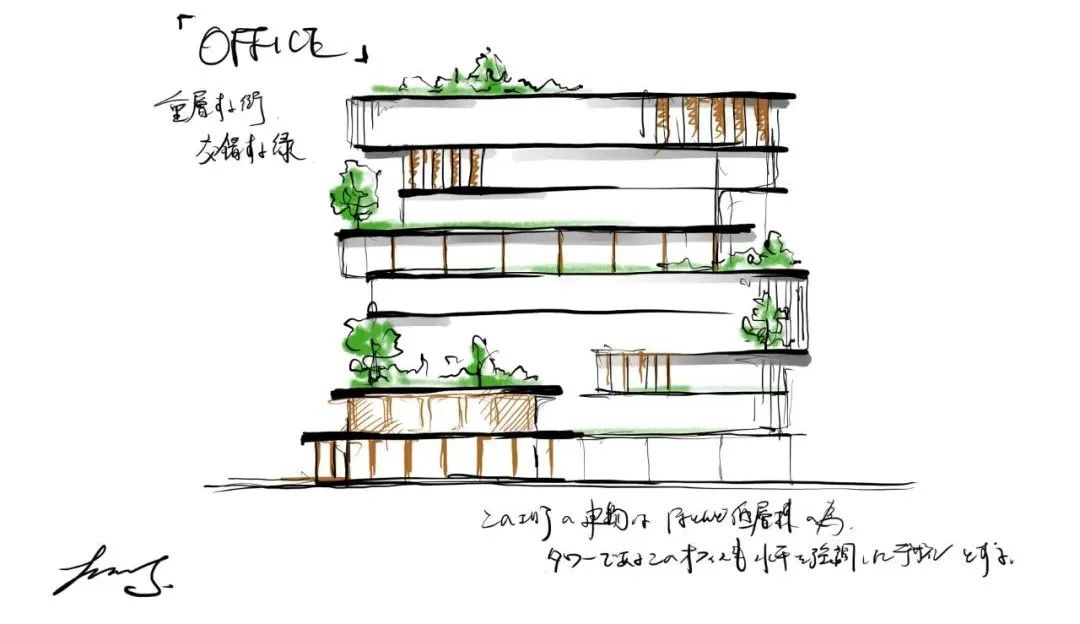 「OFFICE」
重層する街
交錯する緑
この エリアの建物は ほとんど低層棟の為、
タワーであるこのオフィスも水平を強調したデザインとする。